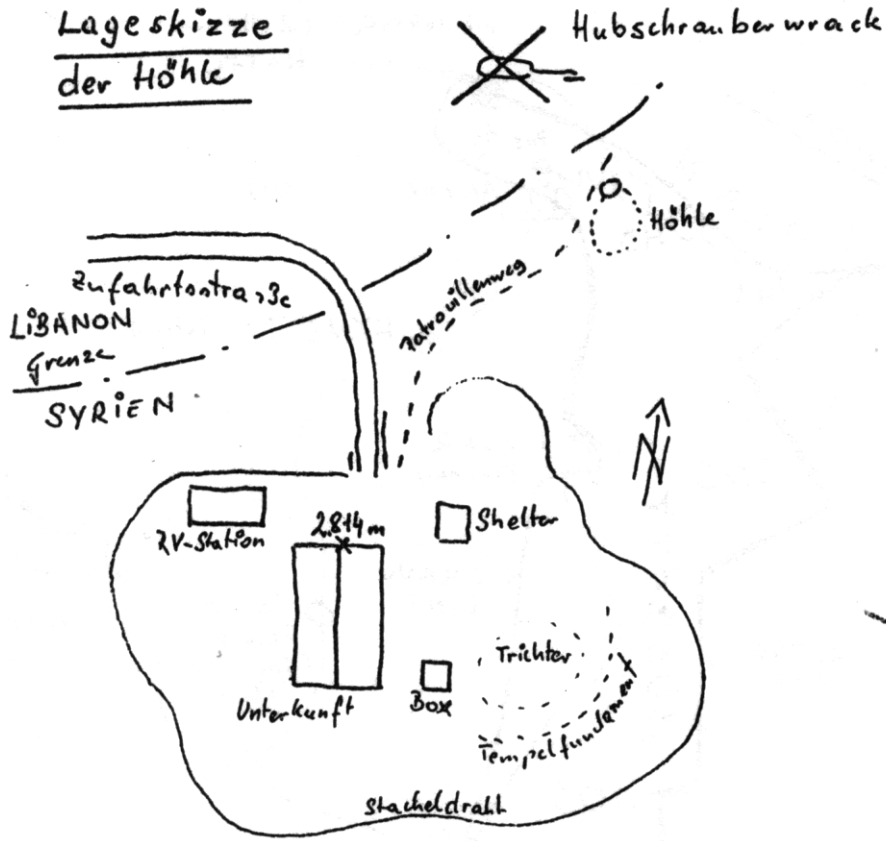 Lageskizze
der Höhle
Hubschrauberwrack
Höhle
Zufahrtsstraße
LIBANON
Grenze
SYRIEN
Patrouillenweg
N
2.814 m
Shelter
RV-Station
Trichter
Unterkunft
Box
Tempelfundament
Stacheldraht